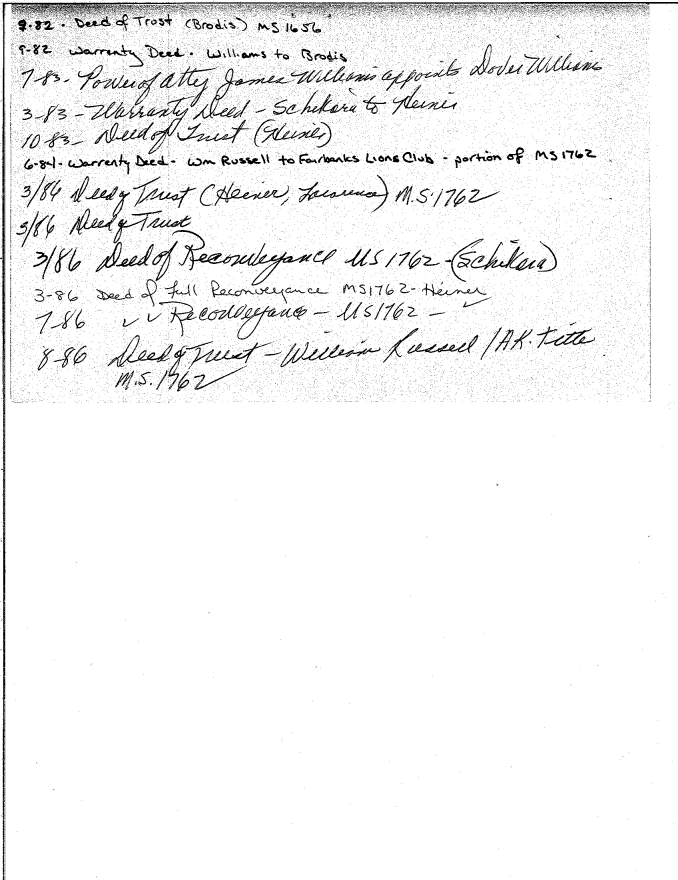 9-82 - Deed of Trust (Brodis) MS 1656
9-82 Warrenty Deed - Williams to Brodis
7-83- Power of Atty James Williams appoints Dover Williams
3-83 - Warranty Deed - Schikora to Heiner
10-83- Deed of Trust (Heiner)
6-84- Warrenty Deed - Wm Russell to Fairbanks Lions Club - portion of MS1762
3/86 Deed of Trust (Heiner, ) M.S. 1762
3/86 Deed of Trust
3/86 Deed of Reconveyance MS 1762 - (Schikora)
3-86 Deed of Full Reconveyance MS1762- Heiner
7-86 ✓ ✓ Reconveyance - MS1762 - ✓
8-86 Deed of Trust - William Russell / AK. Title
M.S. 1762